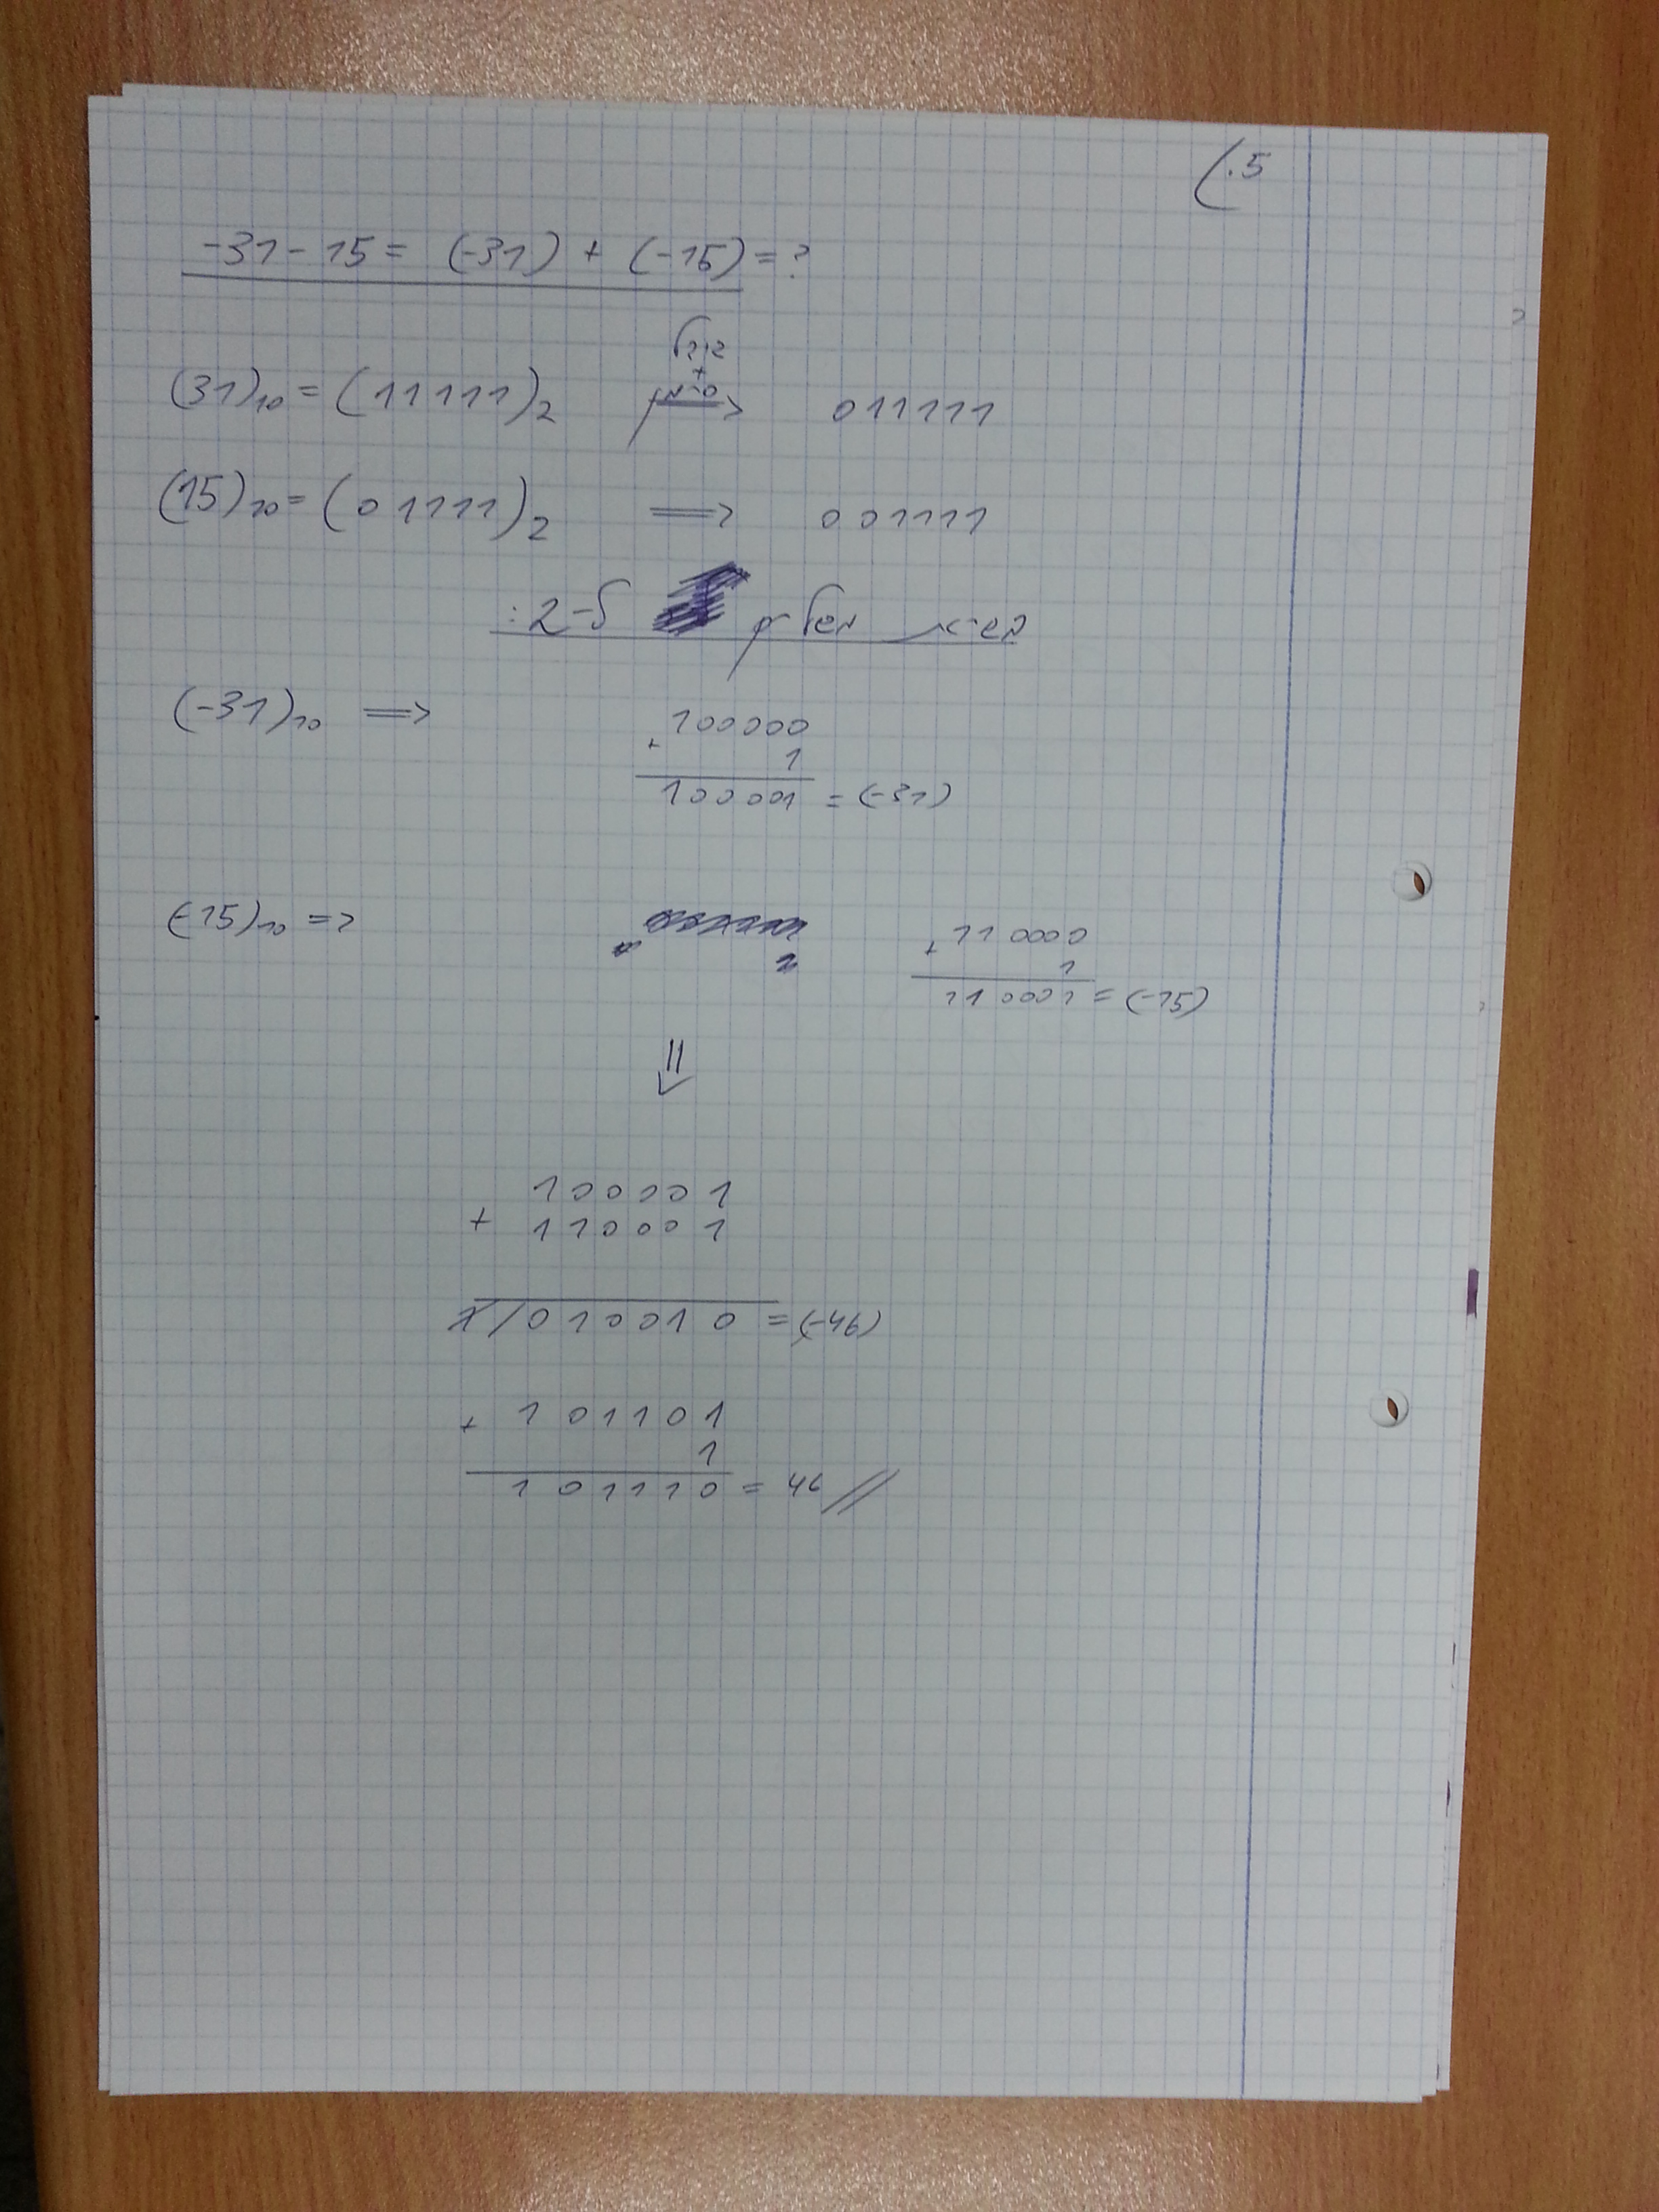 .5
-31-15= (-31) + (-15) = ?
גודל
+
סימן
(31)10 = (11111)2 => 011111
(15)10 = (01111)2 => 001111
בשיטת משלים ל-2:
(-31)10 => 100000
+ 1
100001 = (-31)
(-15)10 => + 110000
1
110001 = (-15)
100001
+ 110001
1/010010 = (-46)
+ 101101
1
101110 = 46 //